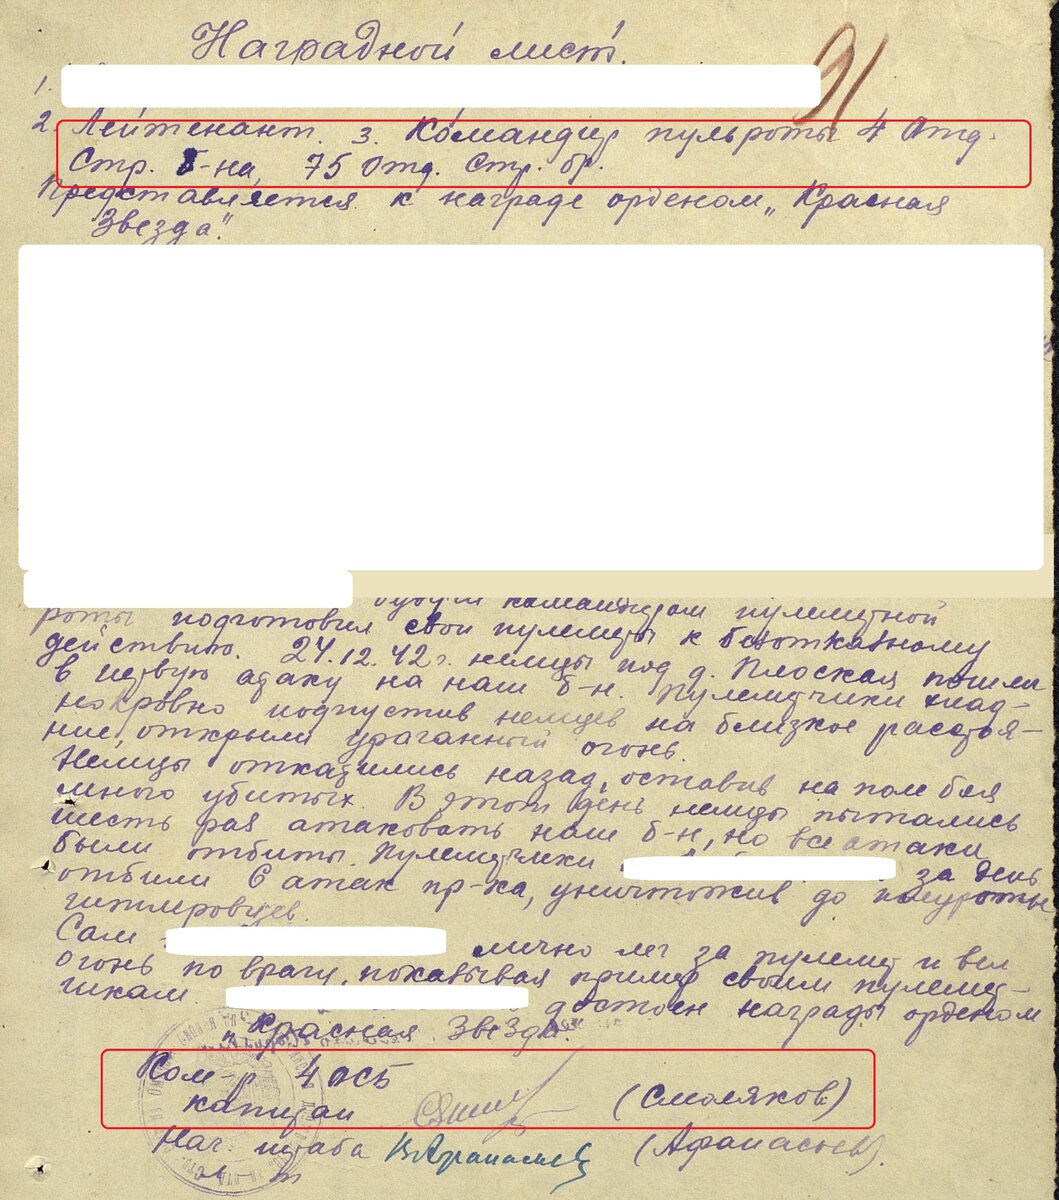 Наградной лист.
91
1.
2. Лейтенант. 3. Командир пульроты 4 отд.
Стр. б-на, 75 Отд. Стр. бр.
Представляется к награде орденом „Красная
Звезда".
будучи командиром пулеметной
роты подготовил свои пулеметы к безотказному
действию. 24.12.42г. немцы под д. Плоская пошли
в первую атаку на наш б-н. Пулеметчики хлад-
нокровно подпустив немцев на близкое расстоя-
ние, открыли ураганный огонь.
Немцы откатились назад, оставив на поле боя
много убитых. В этот день немцы пытались
шесть раз атаковать наш б-н, но все атаки
были отбиты. Пулеметчики за день
отбили 6 атак пр-ка, уничтожив до полуроты
гитлеровцев.
Сам лично лег за пулемет и вел
огонь по врагу, показывая пример своим пулемет-
чикам достоен награды орденом
„Красная Звезда".
Ком-р 4 ОСБ
капитан (Смоляков)
Нач. штаба В Афанасьев (Афанасьев).